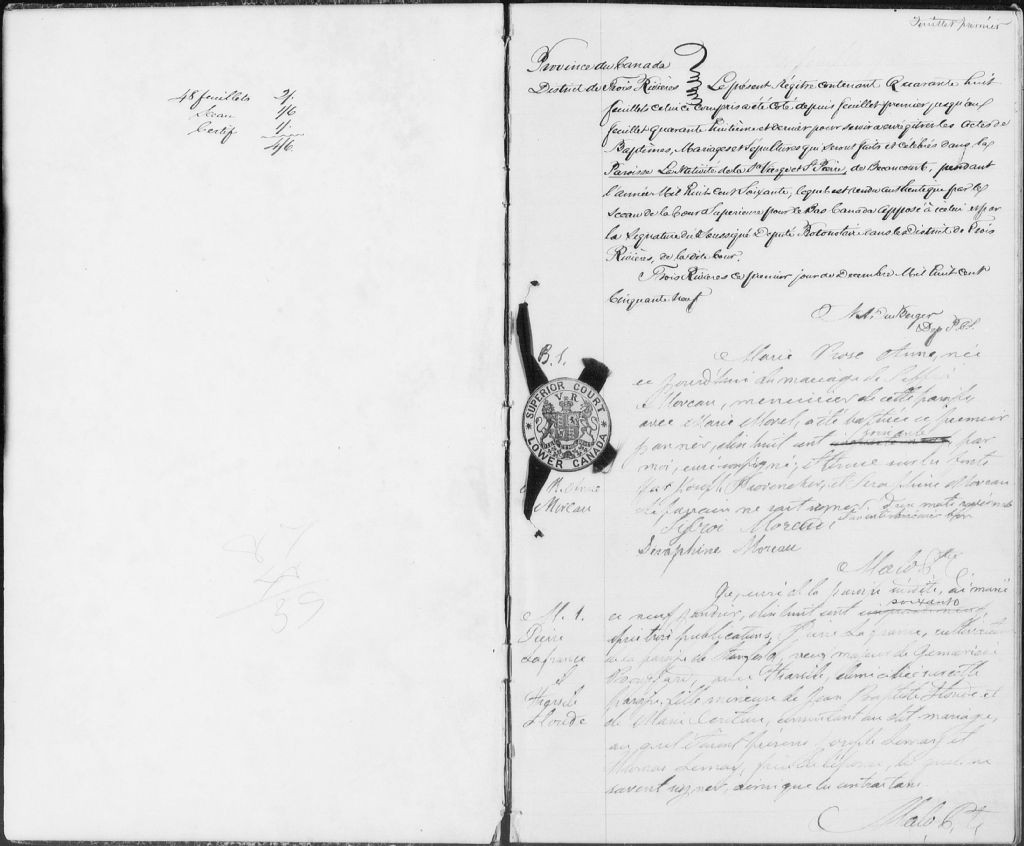 48 feuillets 2/
Sceau 1/6
Certif 1/-
4/6
Feuillet premier
Province du Canada
District de Trois Rivières
Le présent Régitre contenant Quarante huit
feuillets celui ce compris a été coté depuis feuillet premier jusqu'au
feuillet Quarante huitième et dernier pour servir a enrégitrer les actes de
Baptèmes, Mariages et Sépultures qui seront faits et célébrés dans la
Paroisse La Nativité de la Ste Vierge et St Pierre, de Becancourt, pendant
l'année Mil Huit Cent Soixante, lequel est rendu authentique par le
Sceau de la Cour Supérieure pour le Bas Canada apposé à celui et par
la Signature du Soussigné Député Protonotaire dans le District de Trois
Rivières, de la dite Cour.
Trois Rivières ce premier jour de Decembre Mil huit cent
Cinquante neuf
Dep P.C.S.
B. 1.
SUPERIOR COURT
V R
LOWER CANADA
M. R. Anne
Moreau
Marie Rose Anne, née
ce jourd'hui du mariage de
Moreau, menuisier de cette paroisse,
avec Marie Morel, a été baptisée ce premier
janvier, dix huit cent soixante, par
moi, curé soussigné; et tenue sur les fonts
par Joseph Provencher, et Séraphine Moreau
le parrain ne sait signer.
Moreau
Séraphine Moreau
Malo Ptre
M. 1.
Pierre
Lafrance
&
Tharsile
Houde
Je, curé de la paroisse susdite, ai marié
ce neuf janvier, dix huit cent soixante
après trois publications, Pierre Lafrance, cultivateur
de la paroisse de Stanfold, veuf majeur de
avec Tharsile, domiciliée en cette
paroisse, fille mineure de Jean Baptiste Houde et
de Marie consentant au dit mariage,
au quel étaient présens Joseph Lemay et
Thomas Lemay, père de l'épouse, les quels ne
savent signer, ainsi que les contractans.
Malo Ptre